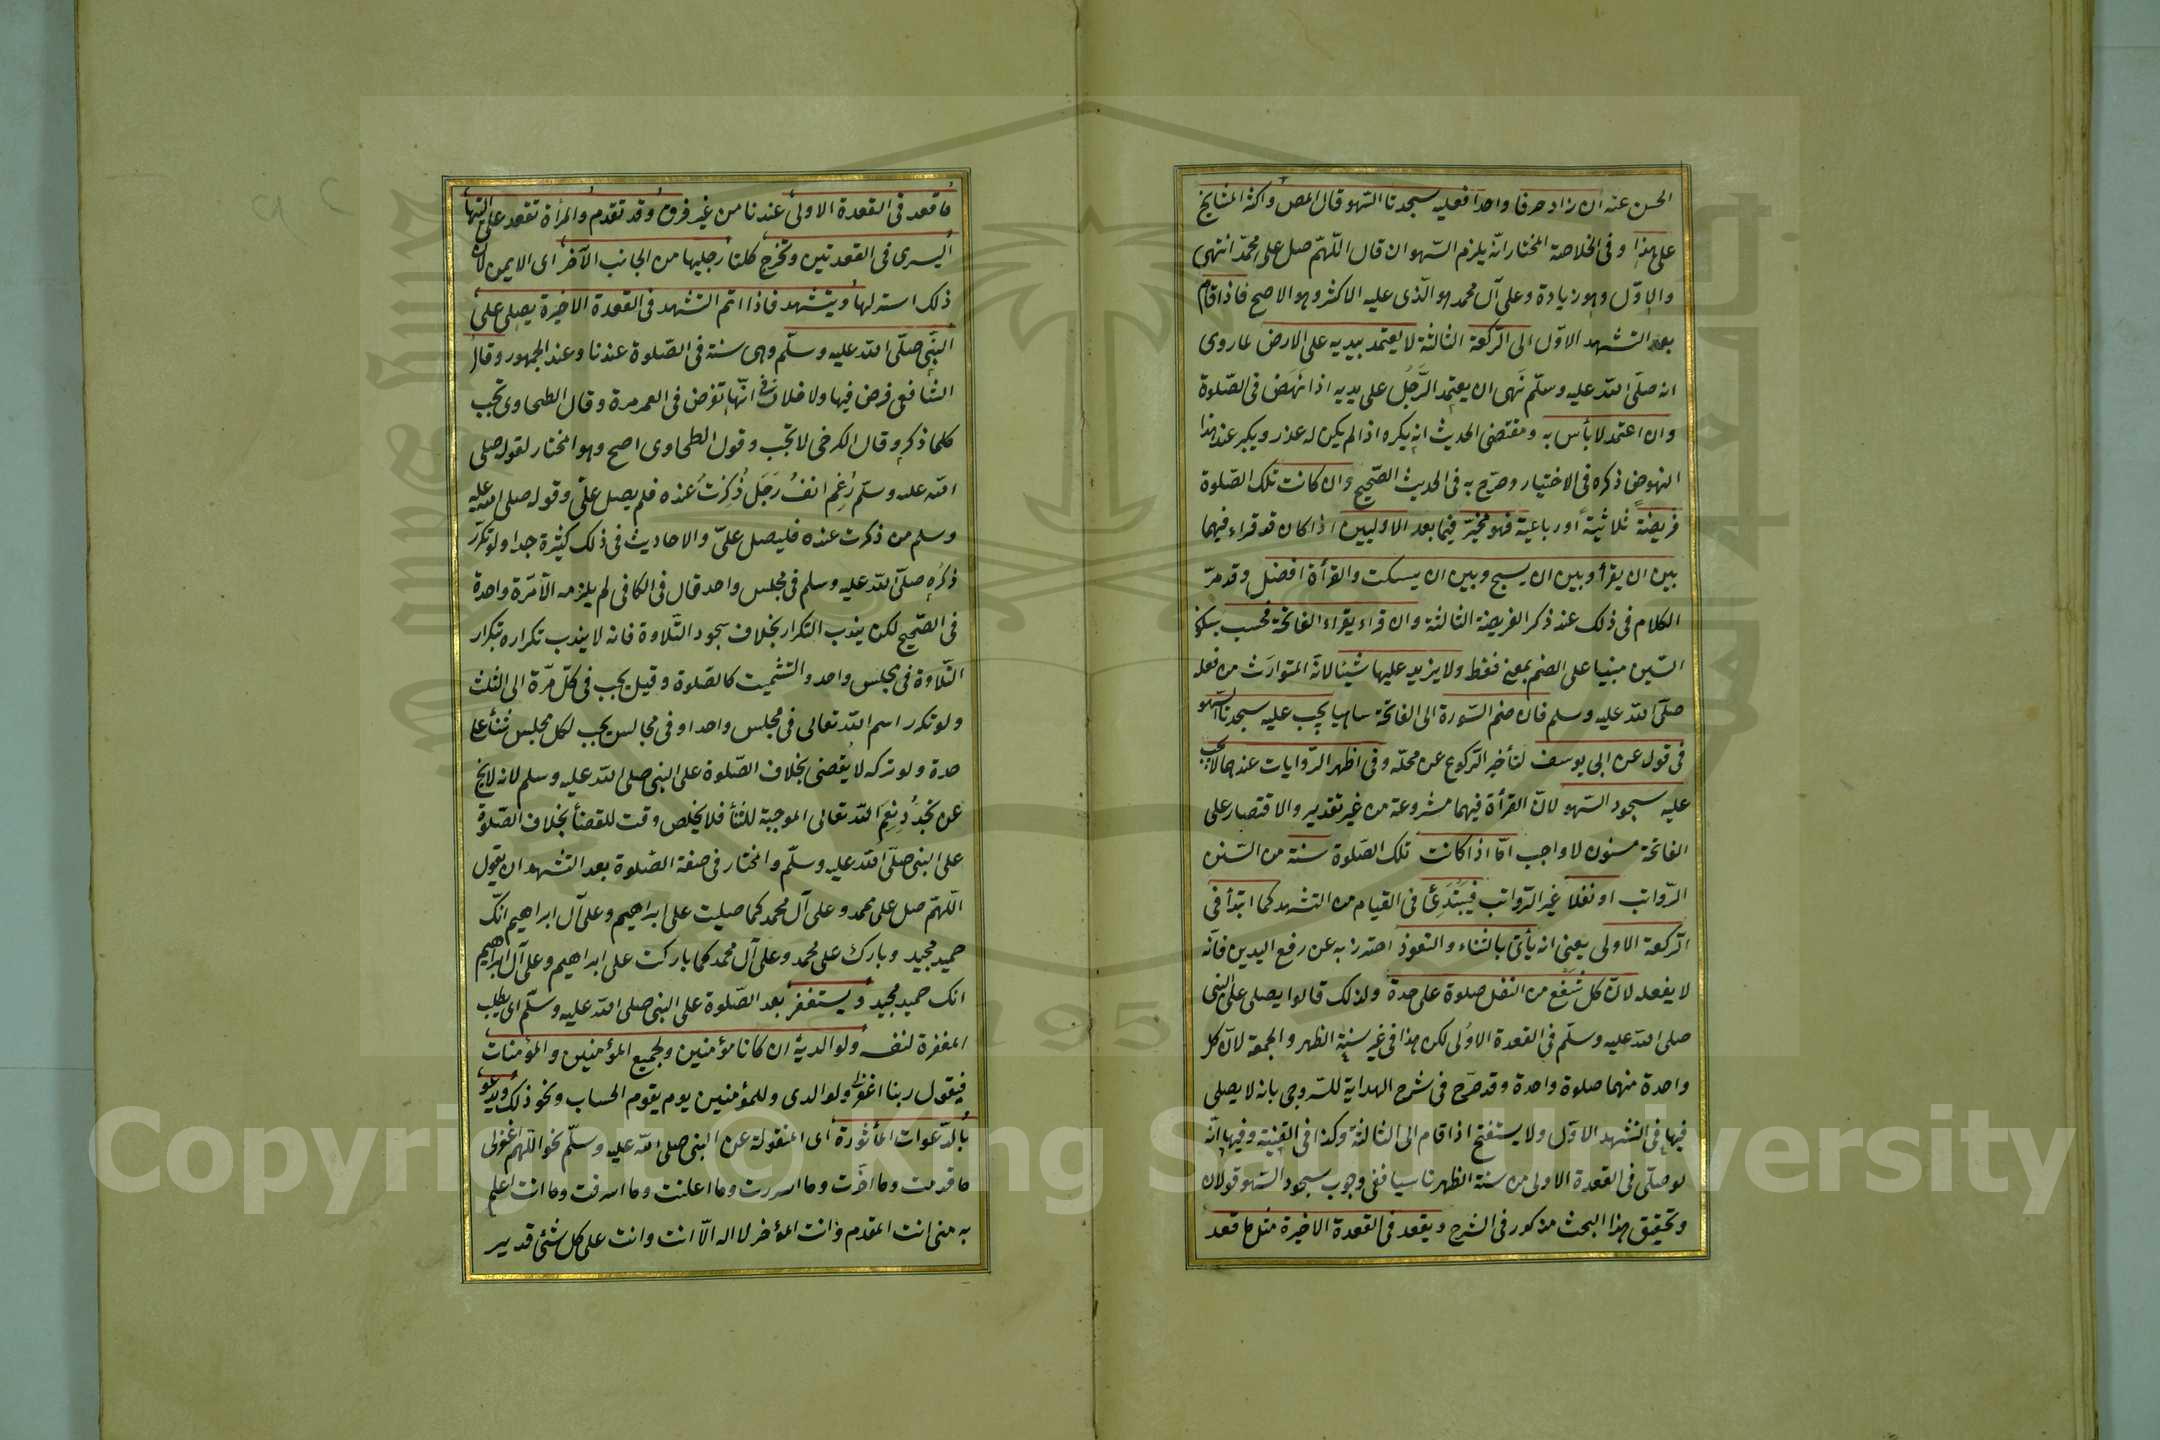 الحسن عنه ان زاد حرفا واحدا فعليه سجدتا السهو قال المص واكثر المشايخ
على هذا وفى الخلاصة المختار انه يلزم السهو ان قال اللهم صل على محمد انتهى
والاول وهو زيادة وعلى آل محمد هو الذى عليه الاكثر وهو الاصح فاذا قام
بعد التشهد الاول الى الركعة الثالثة لا يعتمد بيديه على الارض لما روى
انه صلى الله عليه وسلم نهى ان يعتمد الرجل على يديه اذا نهض فى الصلوة
وان اعتمد لا بأس به ومقتضى الحديث انه يكره اذا لم يكن له عذر ويكبر عند هذا
النهوض ذكره فى الاختيار وصرح به فى الحديث الصحيح وان كانت تلك الصلوة
فريضة ثلاثية او رباعية فهو مخير فيما بعد الاوليين اذا كان قد قراء فيهما
بين ان يقرأ وبين ان يسبح وبين ان يسكت والقرأة افضل وقد مر
الكلام فى ذلك عند ذكر الفريضة الثالثة وان قراء يقراء الفاتحة فحسب بسكو
السين مبنيا على الضم بمعنى فقط ولا يزيد عليها شيئا لان المتوارث من فعله
صلى الله عليه وسلم فان ضم السورة الى الفاتحة ساهيا يجب عليه سجدتا السهو
فى قول عن ابى يوسف لتأخير الركوع عن محله وفى اظهر الروايات عنه لا يجب
عليه سجود السهو لان القرأة فيهما مشروعة من غير تقدير والاقتصار على
الفاتحة مسنون لا واجب اما اذا كانت تلك الصلوة سنة من السنن
الرواتب او نفلا غير الرواتب فيبتدئ فى القيام من التشهد كما ابتدأ فى
الركعة الاولى يعنى انه يأتى بالثناء والتعوذ احترز به عن رفع اليدين فانه
لا يفعله لان كل شفع من النفل صلوة على حدة ولذلك قالوا يصلى على النبى
صلى الله عليه وسلم فى القعدة الاولى لكن هذا فى غير سنة الظهر والجمعة لان كل
واحدة منهما صلوة واحدة وقد صرح فى شرح الهداية للسروجى بانه لا يصلى
فيها فى التشهد الاول ولا يستفتح اذا قام الى الثالثة وكذا فى القنية وفيها انه
لو صلى فى القعدة الاولى من سنة الظهر ناسيا ففى وجوب سجود السهو قولان
وتحقيق هذا البحث مذكور فى الشرح ويقعد فى القعدة الاخيرة مثل ما قعد
ما قعد فى القعدة الاولى عندنا من غير فرق وقد تقدم والمرأة تقعد على اليتها
اليسرى فى القعدتين وتخرج كلتا رجليها من الجانب الآخر اى الايمن لان
ذلك استر لها ويتشهد فاذا اتم التشهد فى القعدة الاخيرة يصلى على
النبى صلى الله عليه وسلم وهى سنة فى الصلوة عندنا وعند الجمهور وقال
الشافعى فرض فيها ولا خلاف فى انها تفرض فى العمر مرة وقال الطحاوى تجب
كلما ذكر وقال الكرخى لا تجب وقول الطحاوى اصح وهو المختار لقوله صلى
الله عليه وسلم رغم انف رجل ذكرت عنده فلم يصل على وقوله صلى الله عليه
وسلم من ذكرت عنده فليصل على والاحاديث فى ذلك كثيرة جدا ولو تكرر
ذكره صلى الله عليه وسلم فى مجلس واحد قال فى الكافى لم يلزمه الا مرة واحدة
فى الصحيح لكن يندب التكرار بخلاف سجود التلاوة فانه لا يندب تكراره بتكرار
التلاوة فى مجلس واحد والتشميت كالصلوة وقيل يجب فى كل مرة الى الثلث
ولو تكرر اسم الله تعالى فى مجلس واحد او فى مجالس يجب لكل مجلس ثناء على
حدة ولو تركه لا يقضى بخلاف الصلوة على النبى صلى الله عليه وسلم لانه لا يخ
عن تجدد نعم الله تعالى الموجبة للثنأ فلا يخلص وقت للقضأ بخلاف الصلوة
على النبى صلى الله عليه وسلم والمختار فى صفة الصلوة بعد التشهد ان يقول
اللهم صل على محمد وعلى آل محمد كما صليت على ابراهيم وعلى آل ابراهيم انك
حميد مجيد وبارك على محمد وعلى آل محمد كما باركت على ابراهيم وعلى آل ابراهيم
انك حميد مجيد ويستغفر بعد الصلوة على النبى صلى الله عليه وسلم اى يطلب
المغفرة لنفسه ولوالديه ان كانا مؤمنين ولجميع المؤمنين والمؤمنات
فيقول ربنا اغفر لى ولوالدى وللمؤمنين يوم يقوم الحساب ونحو ذلك ويدعو
بالدعوات المأثورة اى المنقولة عن النبى صلى الله عليه وسلم نحو اللهم اغفر لى
ما قدمت وما اخرت وما اسررت وما اعلنت وما اسرفت وما انت اعلم
به منى انت المقدم وانت المؤخر لا اله الا انت وانت على كل شئ قدير
Copyright © King Saud University